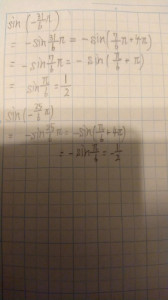 sin(-31/6 π)
= -sin 31/6 π = -sin(7/6 π + 4π)
= -sin 7/6 π = -sin(π/6 + π)
= sin π/6 = 1/2
sin(-25/6 π)
= -sin 25/6 π = -sin(π/6 + 4π)
= -sin π/6 = -1/2